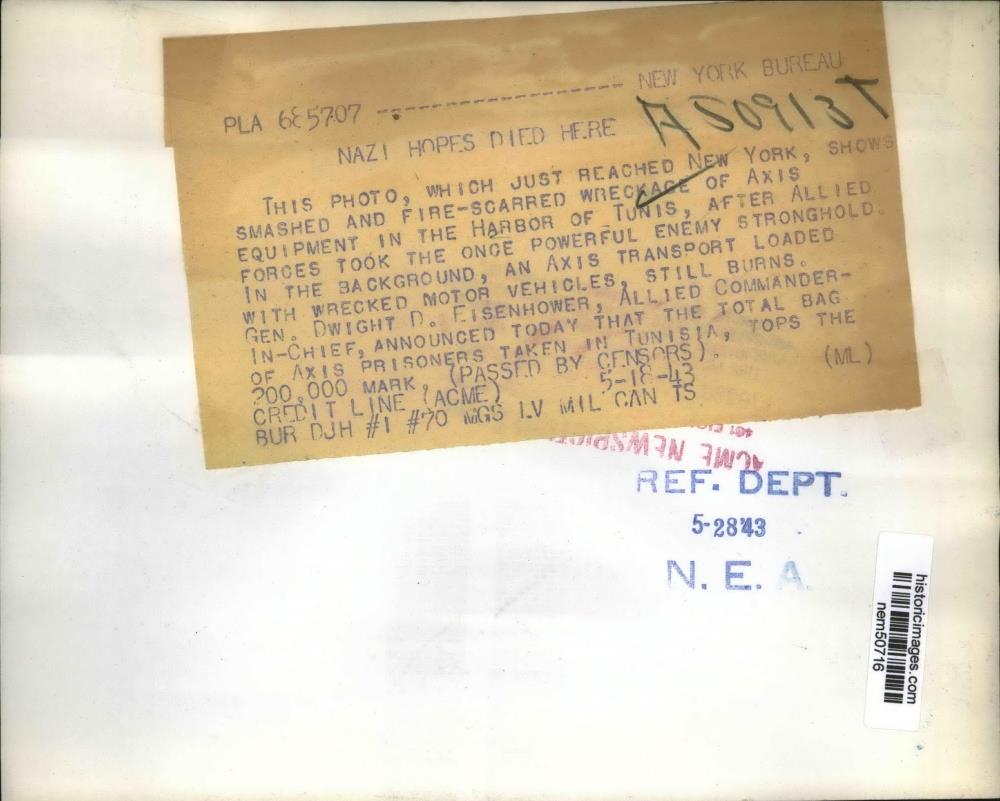 PLA 685707 -------------------- NEW YORK BUREAU
AS0913T
NAZI HOPES DIED HERE
THIS PHOTO, WHICH JUST REACHED NEW YORK, SHOWS
SMASHED AND FIRE-SCARRED WRECKAGE OF AXIS
EQUIPMENT IN THE HARBOR OF TUNIS, AFTER ALLIED
FORCES TOOK THE ONCE POWERFUL ENEMY STRONGHOLD.
IN THE BACKGROUND, AN AXIS TRANSPORT LOADED
WITH WRECKED MOTOR VEHICLES, STILL BURNS.
GEN. DWIGHT D. EISENHOWER, ALLIED COMMANDER-
IN-CHIEF, ANNOUNCED TODAY THAT THE TOTAL BAG
OF AXIS PRISONERS TAKEN IN TUNISIA, TOPS THE
200,000 MARK. (PASSED BY CENSORS). (ML)
CREDIT LINE (ACME) 5-18-43
BUR DJH #1 #70 MGS LV MIL CAN TS
ACME
REF. DEPT.
5-28'43
N. E. A.
historicimages.com
nem50716